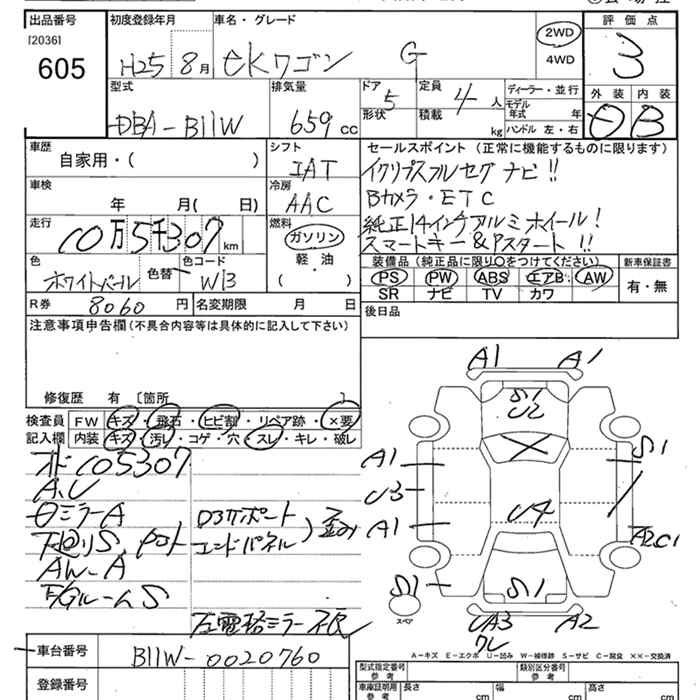 出品番号
[2036]
605
初度登録年月
H25 8月
車名・グレード
eKワゴン G
2WD
4WD
評価点
3
外装 内装
B
型式
DBA-B11W
排気量
659 cc
ドア 5
形状
定員 4 人
積載 kg
ディーラー・並行
モデル年式 年
ハンドル 左・右
車歴
自家用・( )
シフト
IAT
車検
年 月( 日)
冷房
AAC
走行
10万5千307 km
燃料
ガソリン
軽・油
( )
色
ホワイトパール
色替
色コード
W13
R券 8060 円
名変期限 月 日
セールスポイント (正常に機能するものに限ります)
イクリプスフルセグ ナビ!!
Bカメラ・ETC
純正14インチアルミホイール!
スマートキー&Pスタート!!
装備品(純正品に限り○をつけてください)
PS PW ABS エアB AW
SR ナビ TV カワ
新車保証書
有・無
後日品
注意事項申告欄(不具合内容等は具体的に記入して下さい)
修復歴 有 〔箇所 〕
検査員記入欄
FW キズ・飛石・ヒビ割・リペア跡・×要
内装 キズ・汚レ・コゲ・穴・スレ・キレ・破レ
105307
A、U
ミラーA
下回りS、
AW-A
E/GルームS
サポート
エンドパネル
歪み
左電格ミラー不良
A1 A1
S1
U2
A1
S1
U3
U4
A1
A2C1
S1
S1
スペア
UA3
ワレ
A2
A-キズ E-エクボ U-凹み W-補修跡 S-サビ C-腐食 ××-交換済
車台番号
B11W-0020760
登録番号
型式指定番号
参考
類別区分番号
参考
車庫証明用
参考
長さ cm
幅 cm
高さ cm